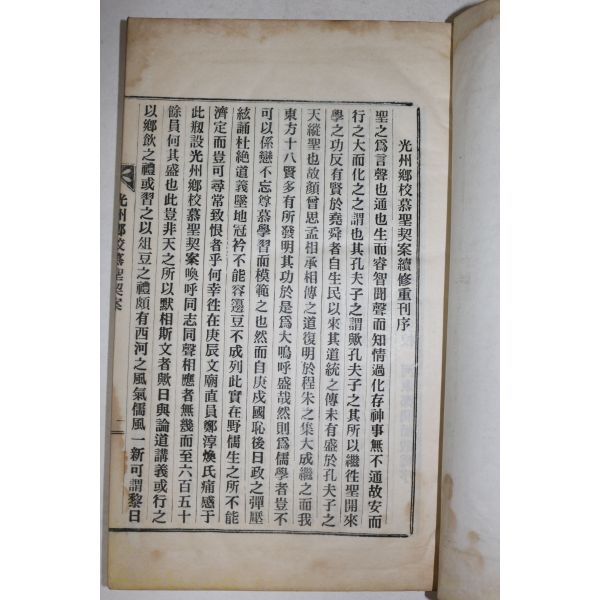 光州鄉校慕聖契案續修重刊序
聖之爲言聲也通也生而睿智聞聲而知情過化存神事無不通故安而
行之大而化之之謂也其孔夫子之謂歟孔夫子之其所以繼徃聖開來
學之功反有賢於堯舜者自生民以來其道統之傳未有盛於孔夫子之
天縱聖也故顔曾思孟相承相傳之道復明於程朱之集大成繼之而我
東方十八賢多有所發明其功於是爲大嗚呼盛哉然則爲儒學者豈不
可以係戀不忘尊慕學習而模範之也然而自庚戌國恥後日政之彈壓
絃誦杜絶道義墜地冠衿不能容籩豆不成列此實在野儒生之所不能
濟定而豈可尋常致恨者乎何幸徃在庚辰文廟直員鄭淳煥氏痛感于
此刱設光州鄉校慕聖契案喚呼同志同聲相應者無幾而至六百五十
餘員何其盛也此豈非天之所以默相斯文者歟日與論道講義或行之
以鄉飮之禮或習之以俎豆之禮頗有西河之風氣儒風一新可謂黎日
光州鄉校慕聖契案
一